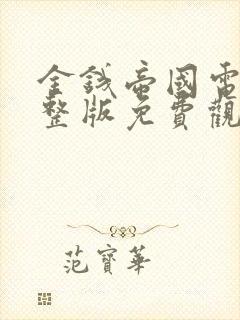 金錢帝國電
整版免費觀
范寶華